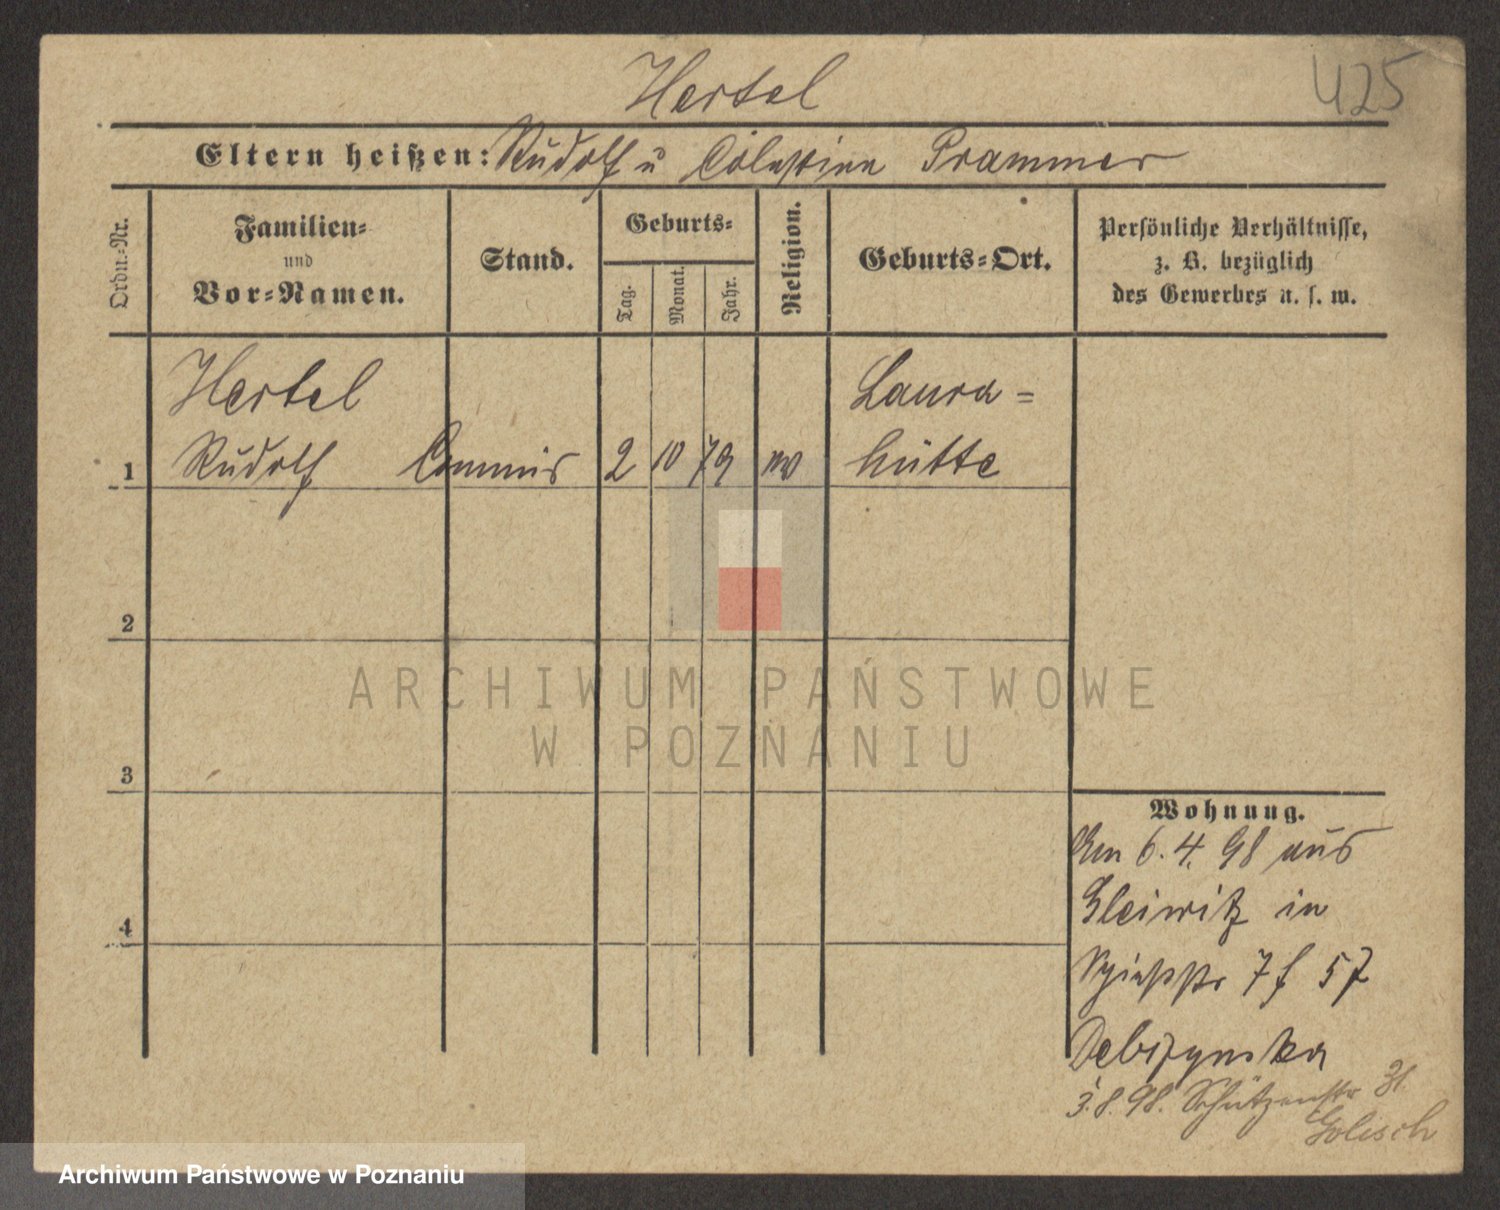 Hertel
425
Eltern heißen: Rudolf u Cölestine Prammer
Ordn.-Nr.
Familien-
und
Vor-Namen.
Stand.
Geburts-
Tag.
Monat.
Jahr.
Religion.
Geburts-Ort.
Persönliche Verhältnisse,
z. B. bezüglich
des Gewerbes u. s. w.
Hertel
Laura=
1 Rudolf Commis 2 10 79 hütte
2
3
4
Wohnung.
Am 6.4.98 aus
Gleiwitz in
7
3.8.98. Schützenstr 31
Golisch
ARCHIWUM PAŃSTWOWE
W POZNANIU
Archiwum Państwowe w Poznaniu